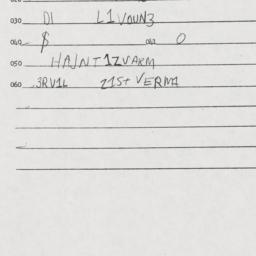 030 DI L1VOUN3
040 $ 041 0
050 HAJNT1ZVARM
060 3RV1L 21ST VERMA